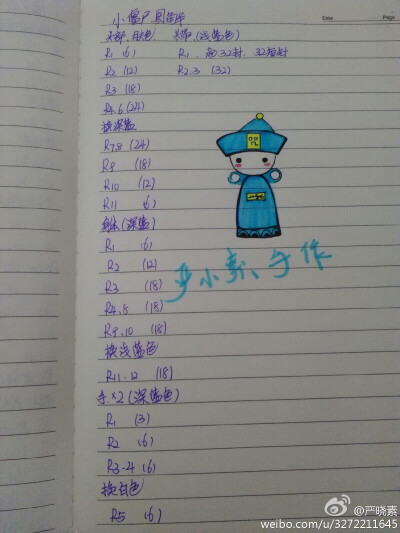 小僵尸图解
Date
头部:肤色
头带:(浅蓝色)
R1 (6)
R1. 起32针. 32短针
R2 (12)
R2.3 (32)
R3 (18)
R4.6 (24)
换深蓝
R7.8 (24)
R9 (18)
R10 (12)
R11 (6)
身体(深蓝)
R1 (6)
R2 (12)
R3 (18)
R4.8 (18)
R9.10 (18)
换浅蓝色
R11.12 (18)
手×2 (深蓝色)
R1 (3)
R2 (6)
R3-4 (6)
换白色
R5 (6)
严小素手作
@严晓素
weibo.com/u/3272211645